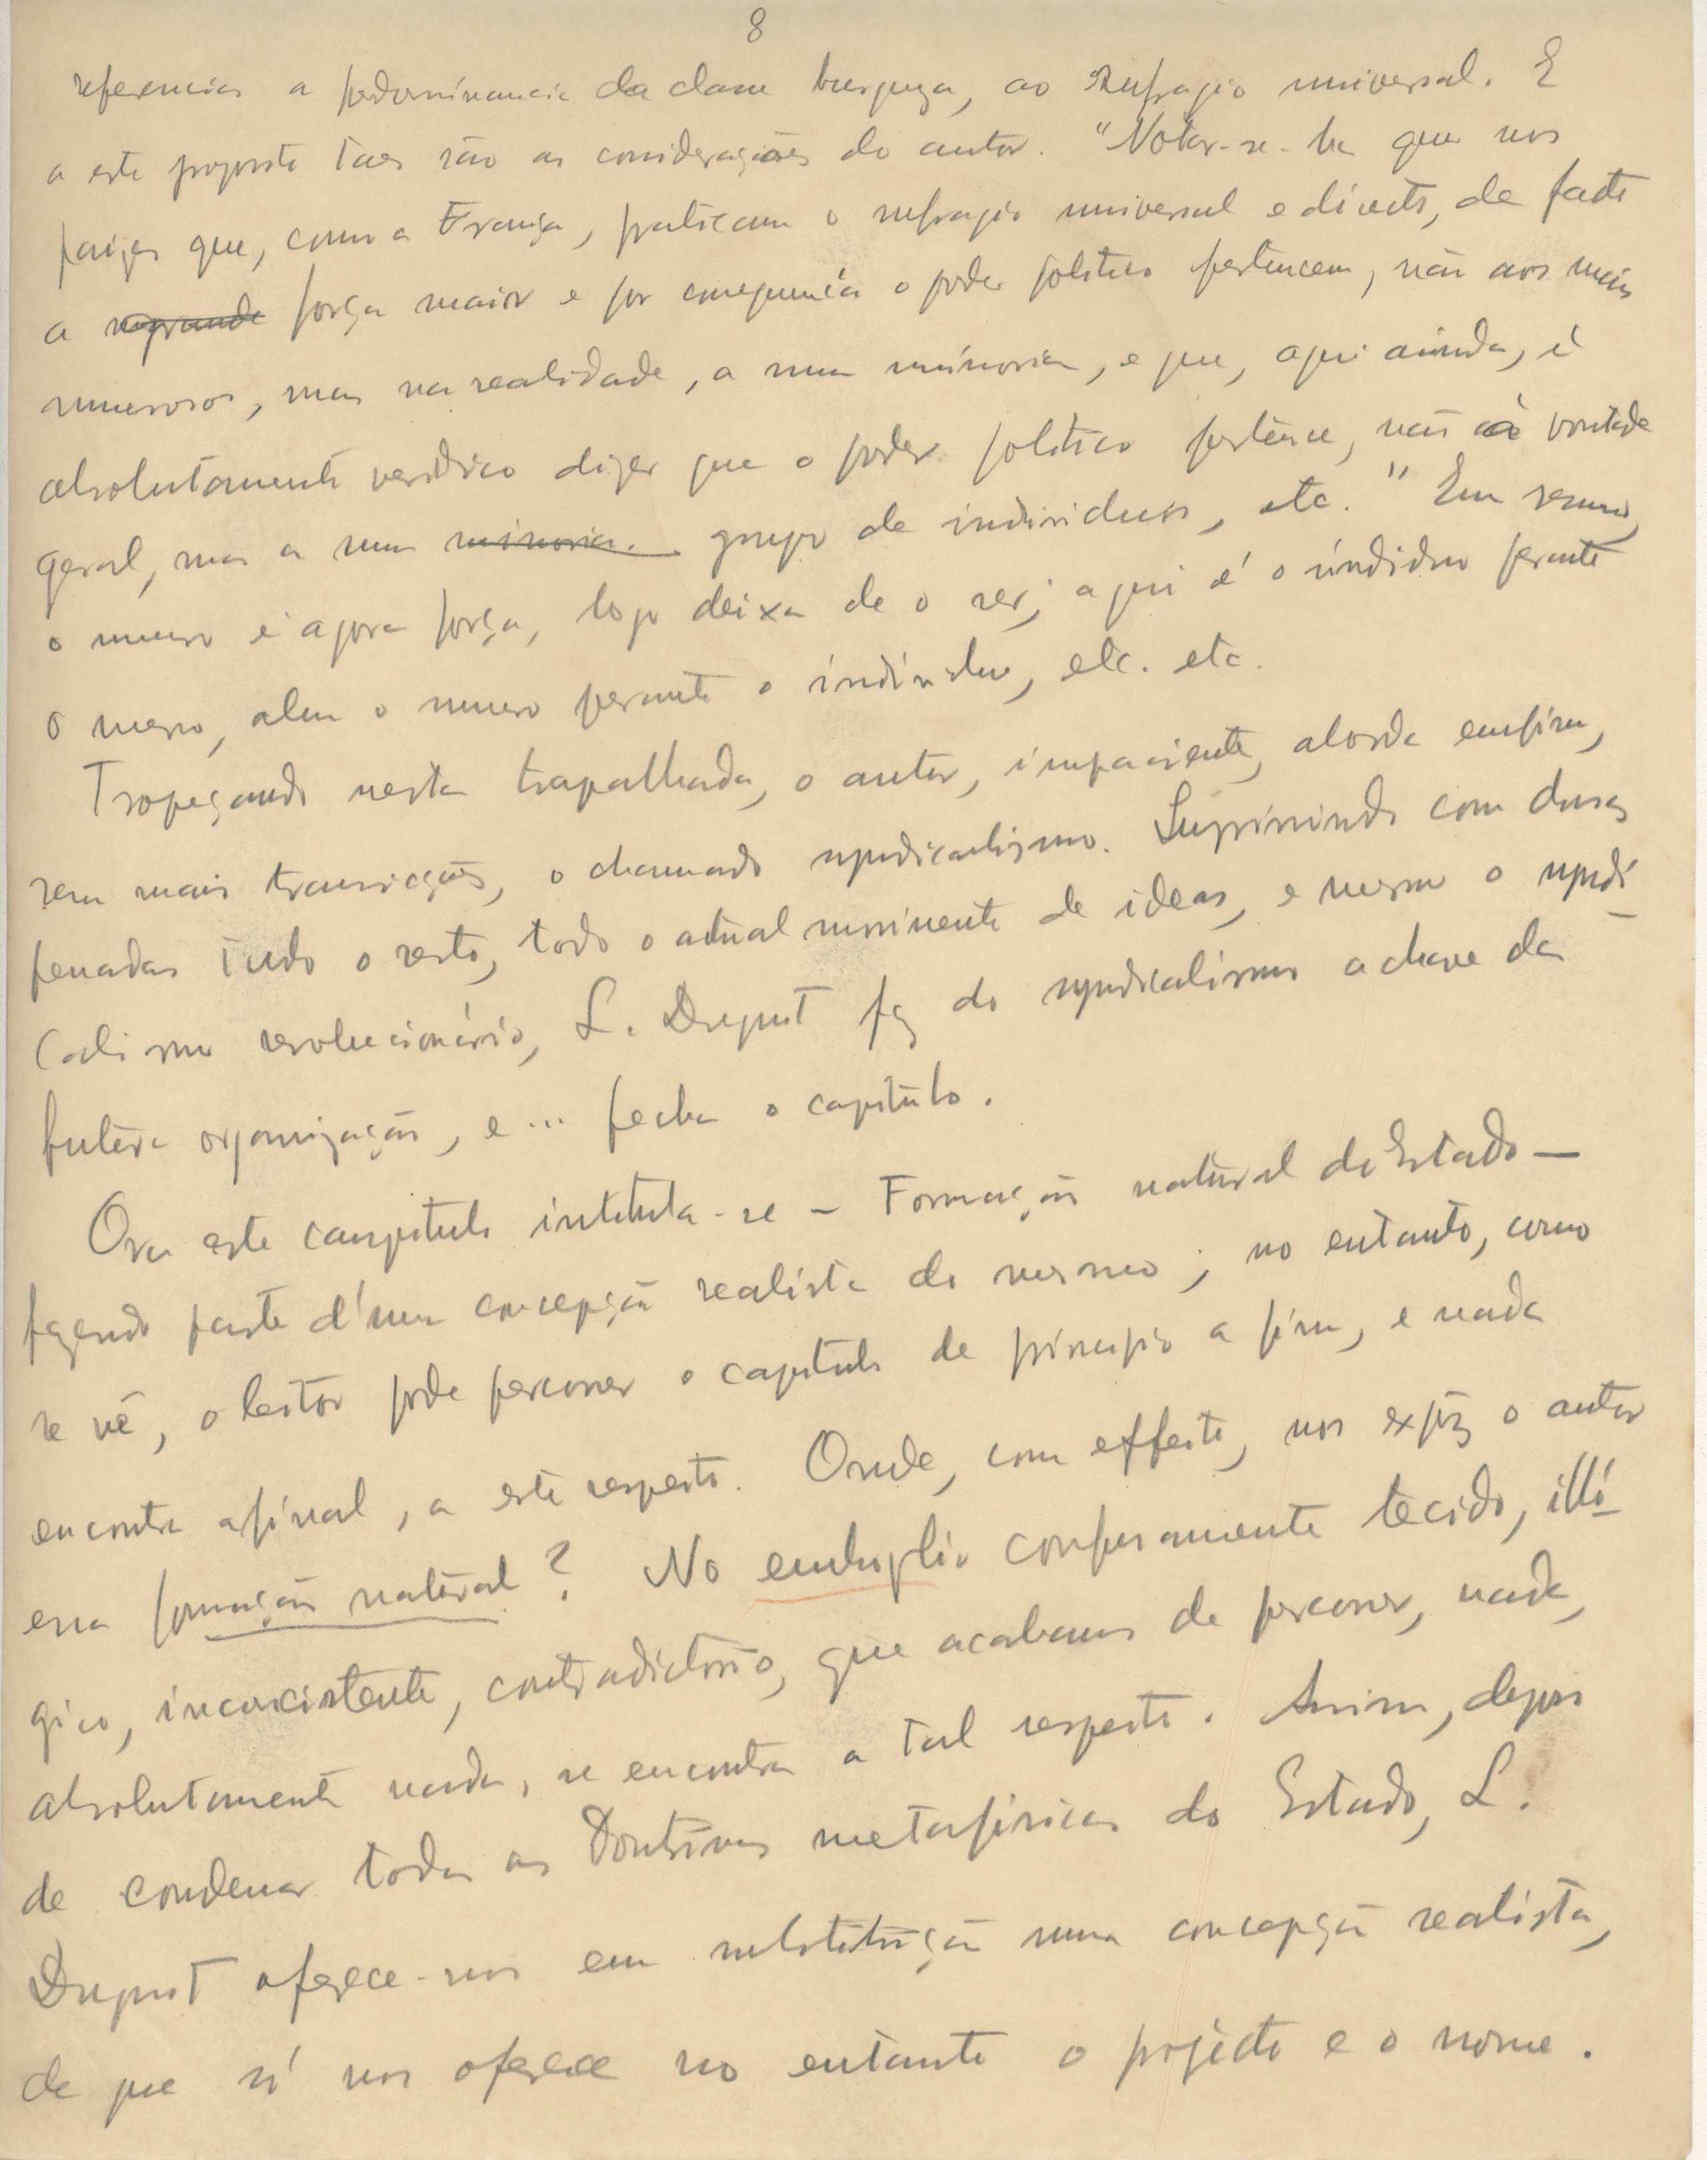 8
referencias a predominancia da classe burgueza, ao sufragio universal. E
a este proposito taes são as considerações do autor. "Notar-se-ha que nos
paizes que, como a França, praticam o sufragio universal e directo, de facto
a força maior e por consequencia o poder politico pertencem, não aos mais
numerosos, mas na realidade, a uma minoria, e que, aqui ainda, é
absolutamente veridico dizer que o poder politico pertence, não á vontade
geral, mas a um minoria. grupo de individuos, etc." Em resumo,
o numero é agora força, logo deixa de o ser; aqui é o indiduo perante
o mero, alem o numero perante o individuo, etc. etc.
Tropeçando nesta trapalhada, o autor, impaciente, aborda emfim,
sem mais transições, o chamado syndicalismo. Suprimindo com duas
penadas tudo o resto, todo o actual movimento de ideas, e mesmo o syndi
calismo revolucionário, L. Duguit faz do syndicalismo a chave da
futura organização, e ... fecha o capitulo.
Ora este campitulo intitula-se - Formação natural do Estado —
fazendo parte d'uma concepção realista do mesmo; no entanto, como
se vê, o leitor pode percorrer o capitulo de principio a fim, e nada
encontra afinal, a este respeito. Onde, com effeito, nos expõz o autor
essa formação natural? No confusamente tecido, illó-
gico, inconsistente, contradictorio, que acabamos de percorrer, nada,
absolutamente nada, se encontra a tal respeito. Assim, depois
de condenar todas as Doutrinas metafisicas do Estado, L.
Duguit oferece-nos em substituição uma concepção realista,
de que só nos oferece no entanto o projecto e o nome.